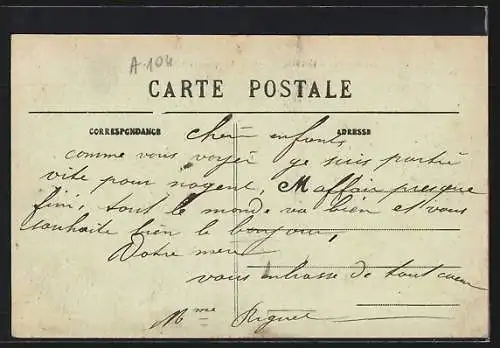 A-104
CARTE POSTALE
CORRESPONDANCE ADRESSE
cher enfants
comme vous voyer ge suis partie
vite pour nogent, M affair presque
fini, tout le monde va bien et vous
souhaite bien le bonjour,
Votre mere
vous embrasse de tout coeur
Mme Riguet